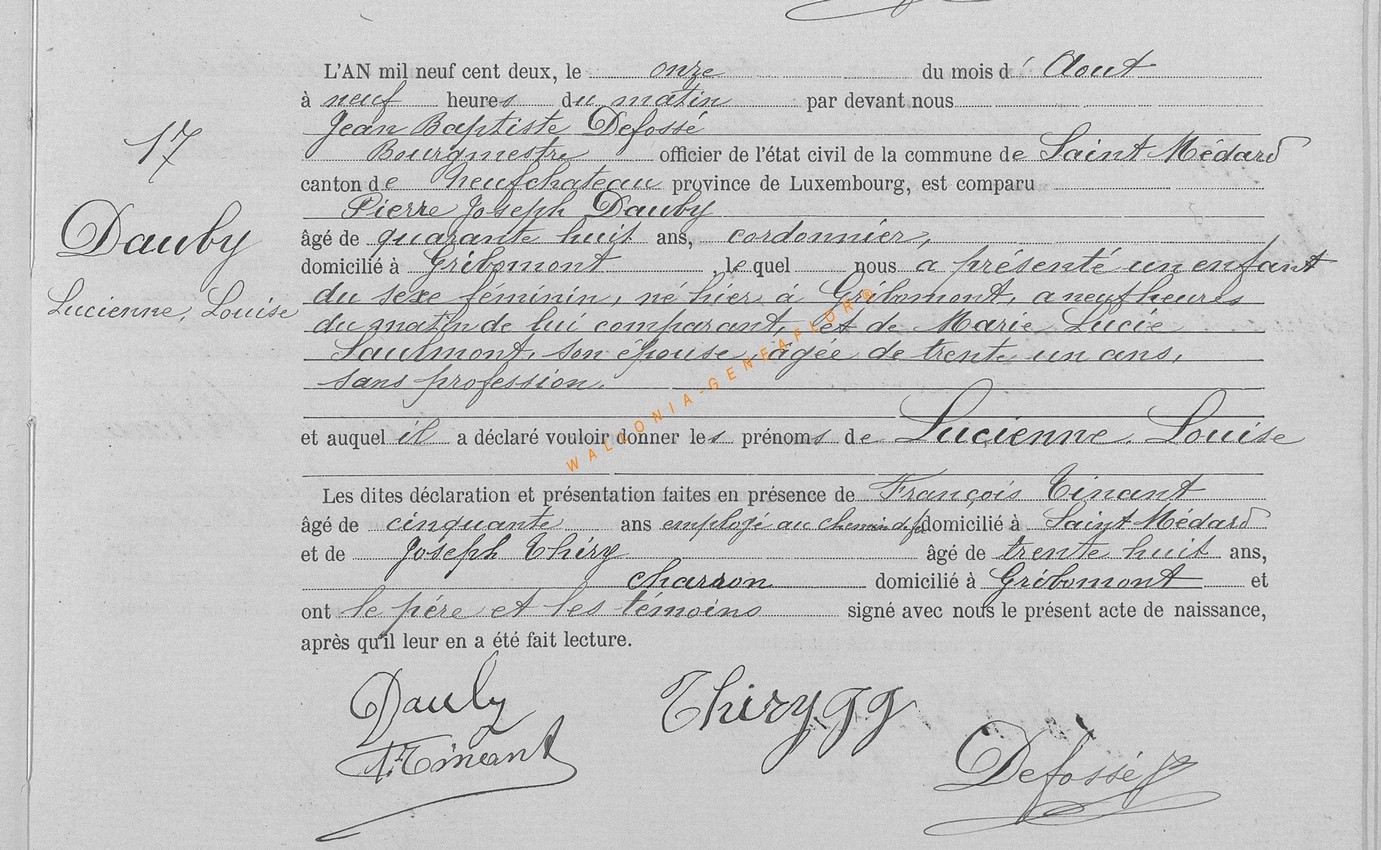 L'AN mil neuf cent deux, le onze du mois d' Aout
à neuf heures du matin par devant nous
Jean Baptiste Defossé
17
Bourgmestre officier de l'état civil de la commune de Saint Médard
canton de Neufchateau province de Luxembourg, est comparu
Pierre Joseph Dauby
Dauby
âgé de quarante huit ans, cordonnier,
domicilié à Gribomont, lequel nous a présenté un enfant
Lucienne, Louise
du sexe féminin, né hier à Gribomont, a neuf heures
du matin de lui comparant, et de Marie Lucie
Saulmont, son épouse, âgée de trente un ans,
sans profession.
WALLONIA-GENEAFLOR©
et auquel il a déclaré vouloir donner les prénoms de Lucienne, Louise
Les dites déclaration et présentation faites en présence de François Tinant
âgé de cinquante ans employé au chemin de f domicilié à Saint Médard
et de Joseph Thiry âgé de trente huit ans,
charron domicilié à Gribomont et
ont le père et les témoins signé avec nous le présent acte de naissance,
après qu'il leur en a été fait lecture.
Dauby Thiry
Tinant
Defossé